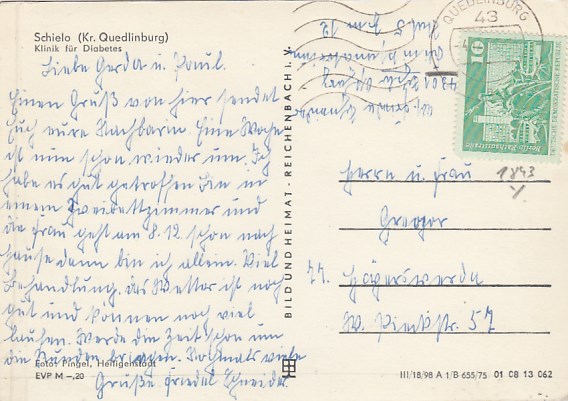 Schielo (Kr. Quedlinburg)
Klinik für Diabetes
Liebe Gerda u. Paul.
Einen Gruß von hier sendet
Euch eure Nachbarin. Eine Woche
ist nun schon wieder um. Ich
habe es gut getroffen bin in
einem Zweibettzimmer und
die Frau geht am 8.12. schon nach
hause dann bin ich allein. Viel
Behandlung, das Wetter ist noch
gut und können noch viel
laufen. Werde die Zeit schon um
die Runden bringen. Nochmals viele
Grüße Friedel Schneider
Foto: Pingel, Heiligenstadt
EVP M –,20
BILD UND HEIMAT · REICHENBACH i. V.
QUEDLINBURG
43
10
DEUTSCHE DEMOKRATISCHE REPUBLIK
Berlin, Rathausstraße
1843
Herrn u. Frau
Gregor
77. Hoyerswerda
W. Pieckstr. 57
III/18/98 A 1/B 655/75 01 08 13 062